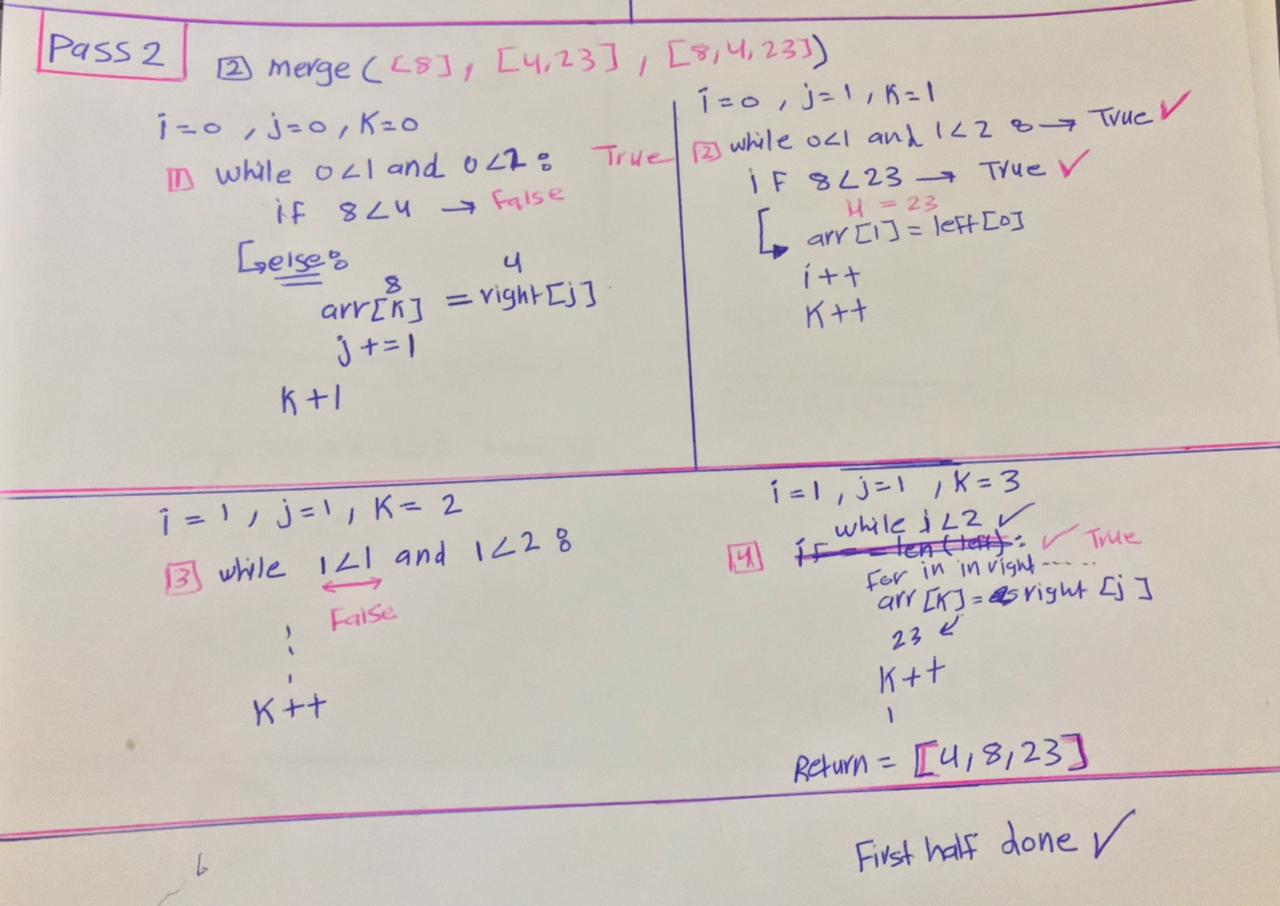 Pass 2
[2] merge ([8], [4,23], [8,4,23])
i=0, j=0, K=0
[1] while 0<1 and 0<2: True
if 8<4 → False
↳else:
8 4
arr[K] = right[j]
j+=1
K+1
i=0, j=1, K=1
[2] while 0<1 and 1<2: → True ✓
if 8<23 → True ✓
4 = 23
arr[1] = left[0]
i++
K++
i=1, j=1, K=2
[3] while 1<1 and 1<2:
False
K++
i=1, j=1, K=3
while j<2 ✓
[4] if = len(left): ✓ True
for in in right ......
arr[K] = right[j]
23 ↙
K++
Return = [4,8,23]
First half done ✓